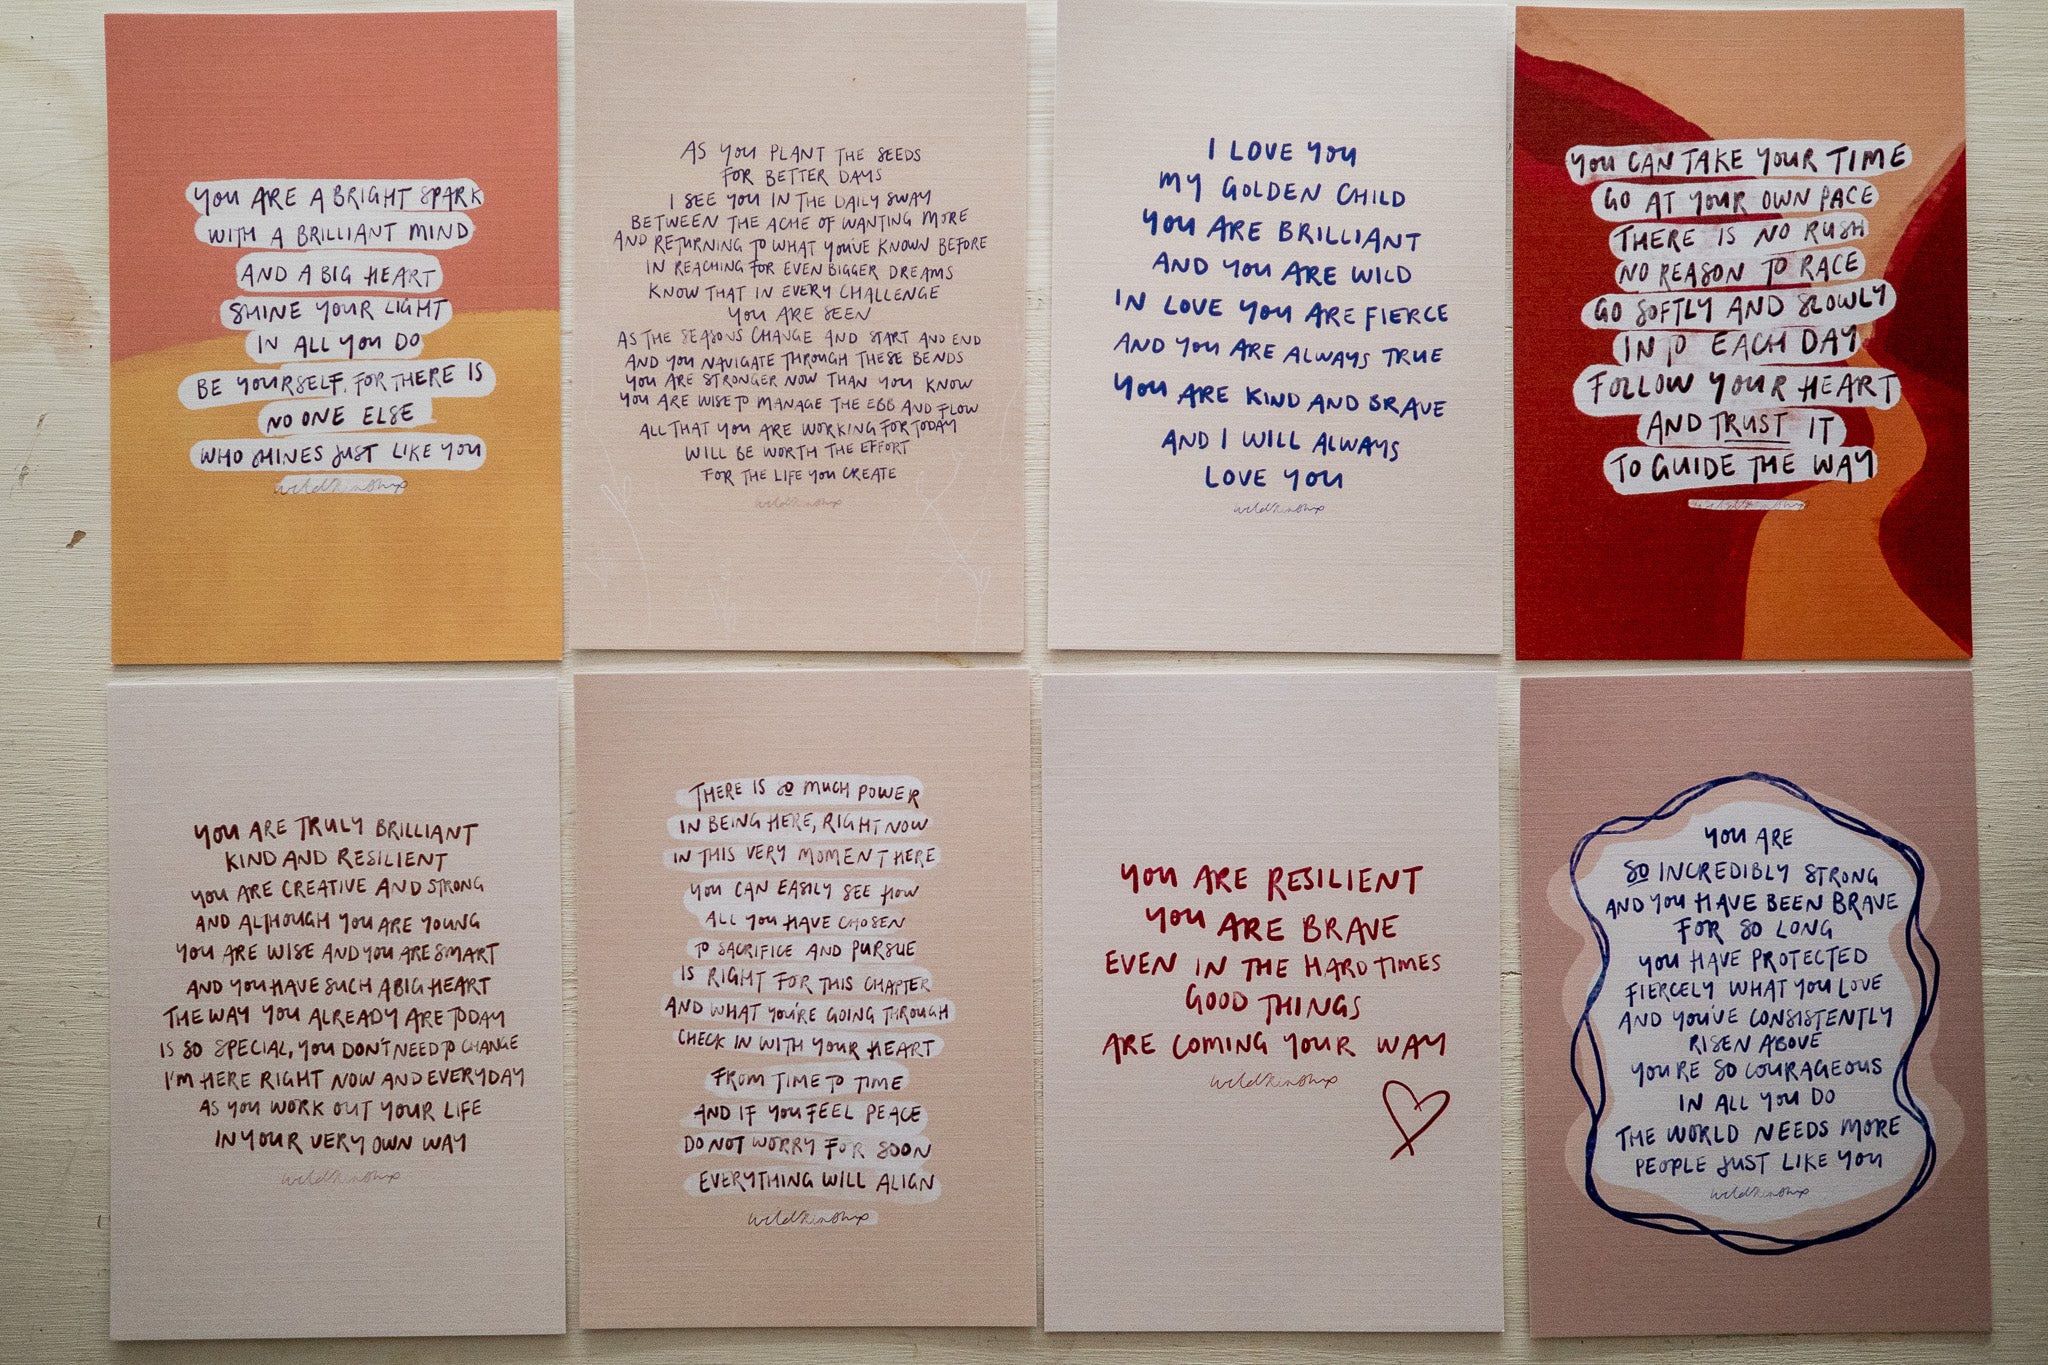 YOU ARE A BRIGHT SPARK
WITH A BRILLIANT MIND
AND A BIG HEART
SHINE YOUR LIGHT
IN ALL YOU DO
BE YOURSELF, FOR THERE IS
NO ONE ELSE
WHO SHINES JUST LIKE YOU
wildkinship
AS YOU PLANT THE SEEDS
FOR BETTER DAYS
I SEE YOU IN THE DAILY SWAY
BETWEEN THE ACHE OF WANTING MORE
AND RETURNING TO WHAT YOU'VE KNOWN BEFORE
IN REACHING FOR EVEN BIGGER DREAMS
KNOW THAT IN EVERY CHALLENGE
YOU ARE SEEN
AS THE SEASONS CHANGE AND START AND END
AND YOU NAVIGATE THROUGH THESE BENDS
YOU ARE STRONGER NOW THAN YOU KNOW
YOU ARE WISE TO MANAGE THE EBB AND FLOW
ALL THAT YOU ARE WORKING FOR TODAY
WILL BE WORTH THE EFFORT
FOR THE LIFE YOU CREATE
wildkinship
I LOVE YOU
MY GOLDEN CHILD
YOU ARE BRILLIANT
AND YOU ARE WILD
IN LOVE YOU ARE FIERCE
AND YOU ARE ALWAYS TRUE
YOU ARE KIND AND BRAVE
AND I WILL ALWAYS
LOVE YOU
wildkinship
YOU CAN TAKE YOUR TIME
GO AT YOUR OWN PACE
THERE IS NO RUSH
NO REASON TO RACE
GO SOFTLY AND SLOWLY
INTO EACH DAY
FOLLOW YOUR HEART
AND TRUST IT
TO GUIDE THE WAY
YOU ARE TRULY BRILLIANT
KIND AND RESILIENT
YOU ARE CREATIVE AND STRONG
AND ALTHOUGH YOU ARE YOUNG
YOU ARE WISE AND YOU ARE SMART
AND YOU HAVE SUCH A BIG HEART
THE WAY YOU ALREADY ARE TODAY
IS SO SPECIAL, YOU DON'T NEED TO CHANGE
I'M HERE RIGHT NOW AND EVERYDAY
AS YOU WORK OUT YOUR LIFE
IN YOUR VERY OWN WAY
wildkinship
THERE IS SO MUCH POWER
IN BEING HERE, RIGHT NOW
IN THIS VERY MOMENT HERE
YOU CAN EASILY SEE HOW
ALL YOU HAVE CHOSEN
TO SACRIFICE AND PURSUE
IS RIGHT FOR THIS CHAPTER
AND WHAT YOU'RE GOING THROUGH
CHECK IN WITH YOUR HEART
FROM TIME TO TIME
AND IF YOU FEEL PEACE
DO NOT WORRY FOR SOON
EVERYTHING WILL ALIGN
wildkinship
YOU ARE RESILIENT
YOU ARE BRAVE
EVEN IN THE HARD TIMES
GOOD THINGS
ARE COMING YOUR WAY
wildkinship
YOU ARE
SO INCREDIBLY STRONG
AND YOU HAVE BEEN BRAVE
FOR SO LONG
YOU HAVE PROTECTED
FIERCELY WHAT YOU LOVE
AND YOU'VE CONSISTENTLY
RISEN ABOVE
YOU'RE SO COURAGEOUS
IN ALL YOU DO
THE WORLD NEEDS MORE
PEOPLE JUST LIKE YOU
wildkinship